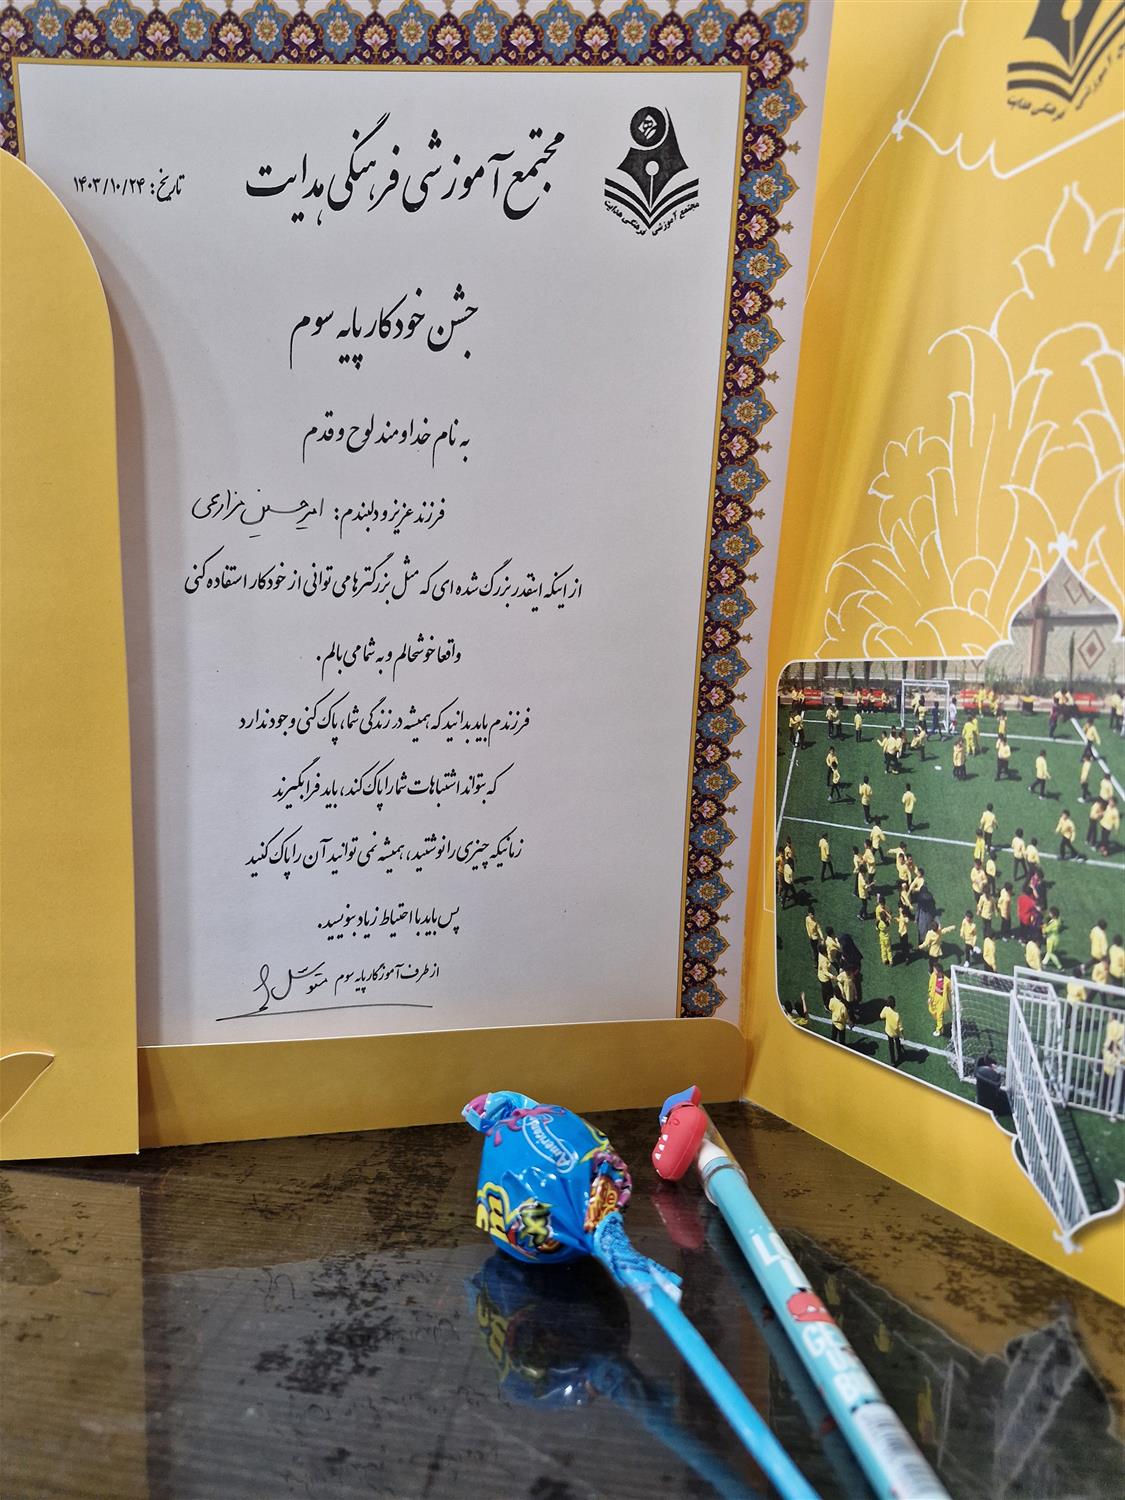 مجتمع آموزشی فرهنگی هدایت
تاریخ: ۱۴۰۳/۱۰/۲۴
مجتمع آموزشی فرهنگی هدایت
جشن خودکار پایه سوم
به نام خداوند لوح و قدم
فرزند عزیز و دلبندم: امیرحسین مزارعی
از اینکه اینقدر بزرگ شده ای که مثل بزرگترها می توانی از خودکار استفاده کنی
واقعا خوشحالم و به شما می بالم.
فرزندم باید بدانید که همیشه در زندگی شما، پاک کنی وجود ندارد
که بتواند اشتباهات شما را پاک کند، باید فرا بگیرند
زمانیکه چیزی را نوشتید، همیشه نمی توانید آن را پاک کنید
پس باید با احتیاط زیاد بنویسید.
از طرف آموزگار پایه سوم متوسل
آموزشی فرهنگی هدایت
American